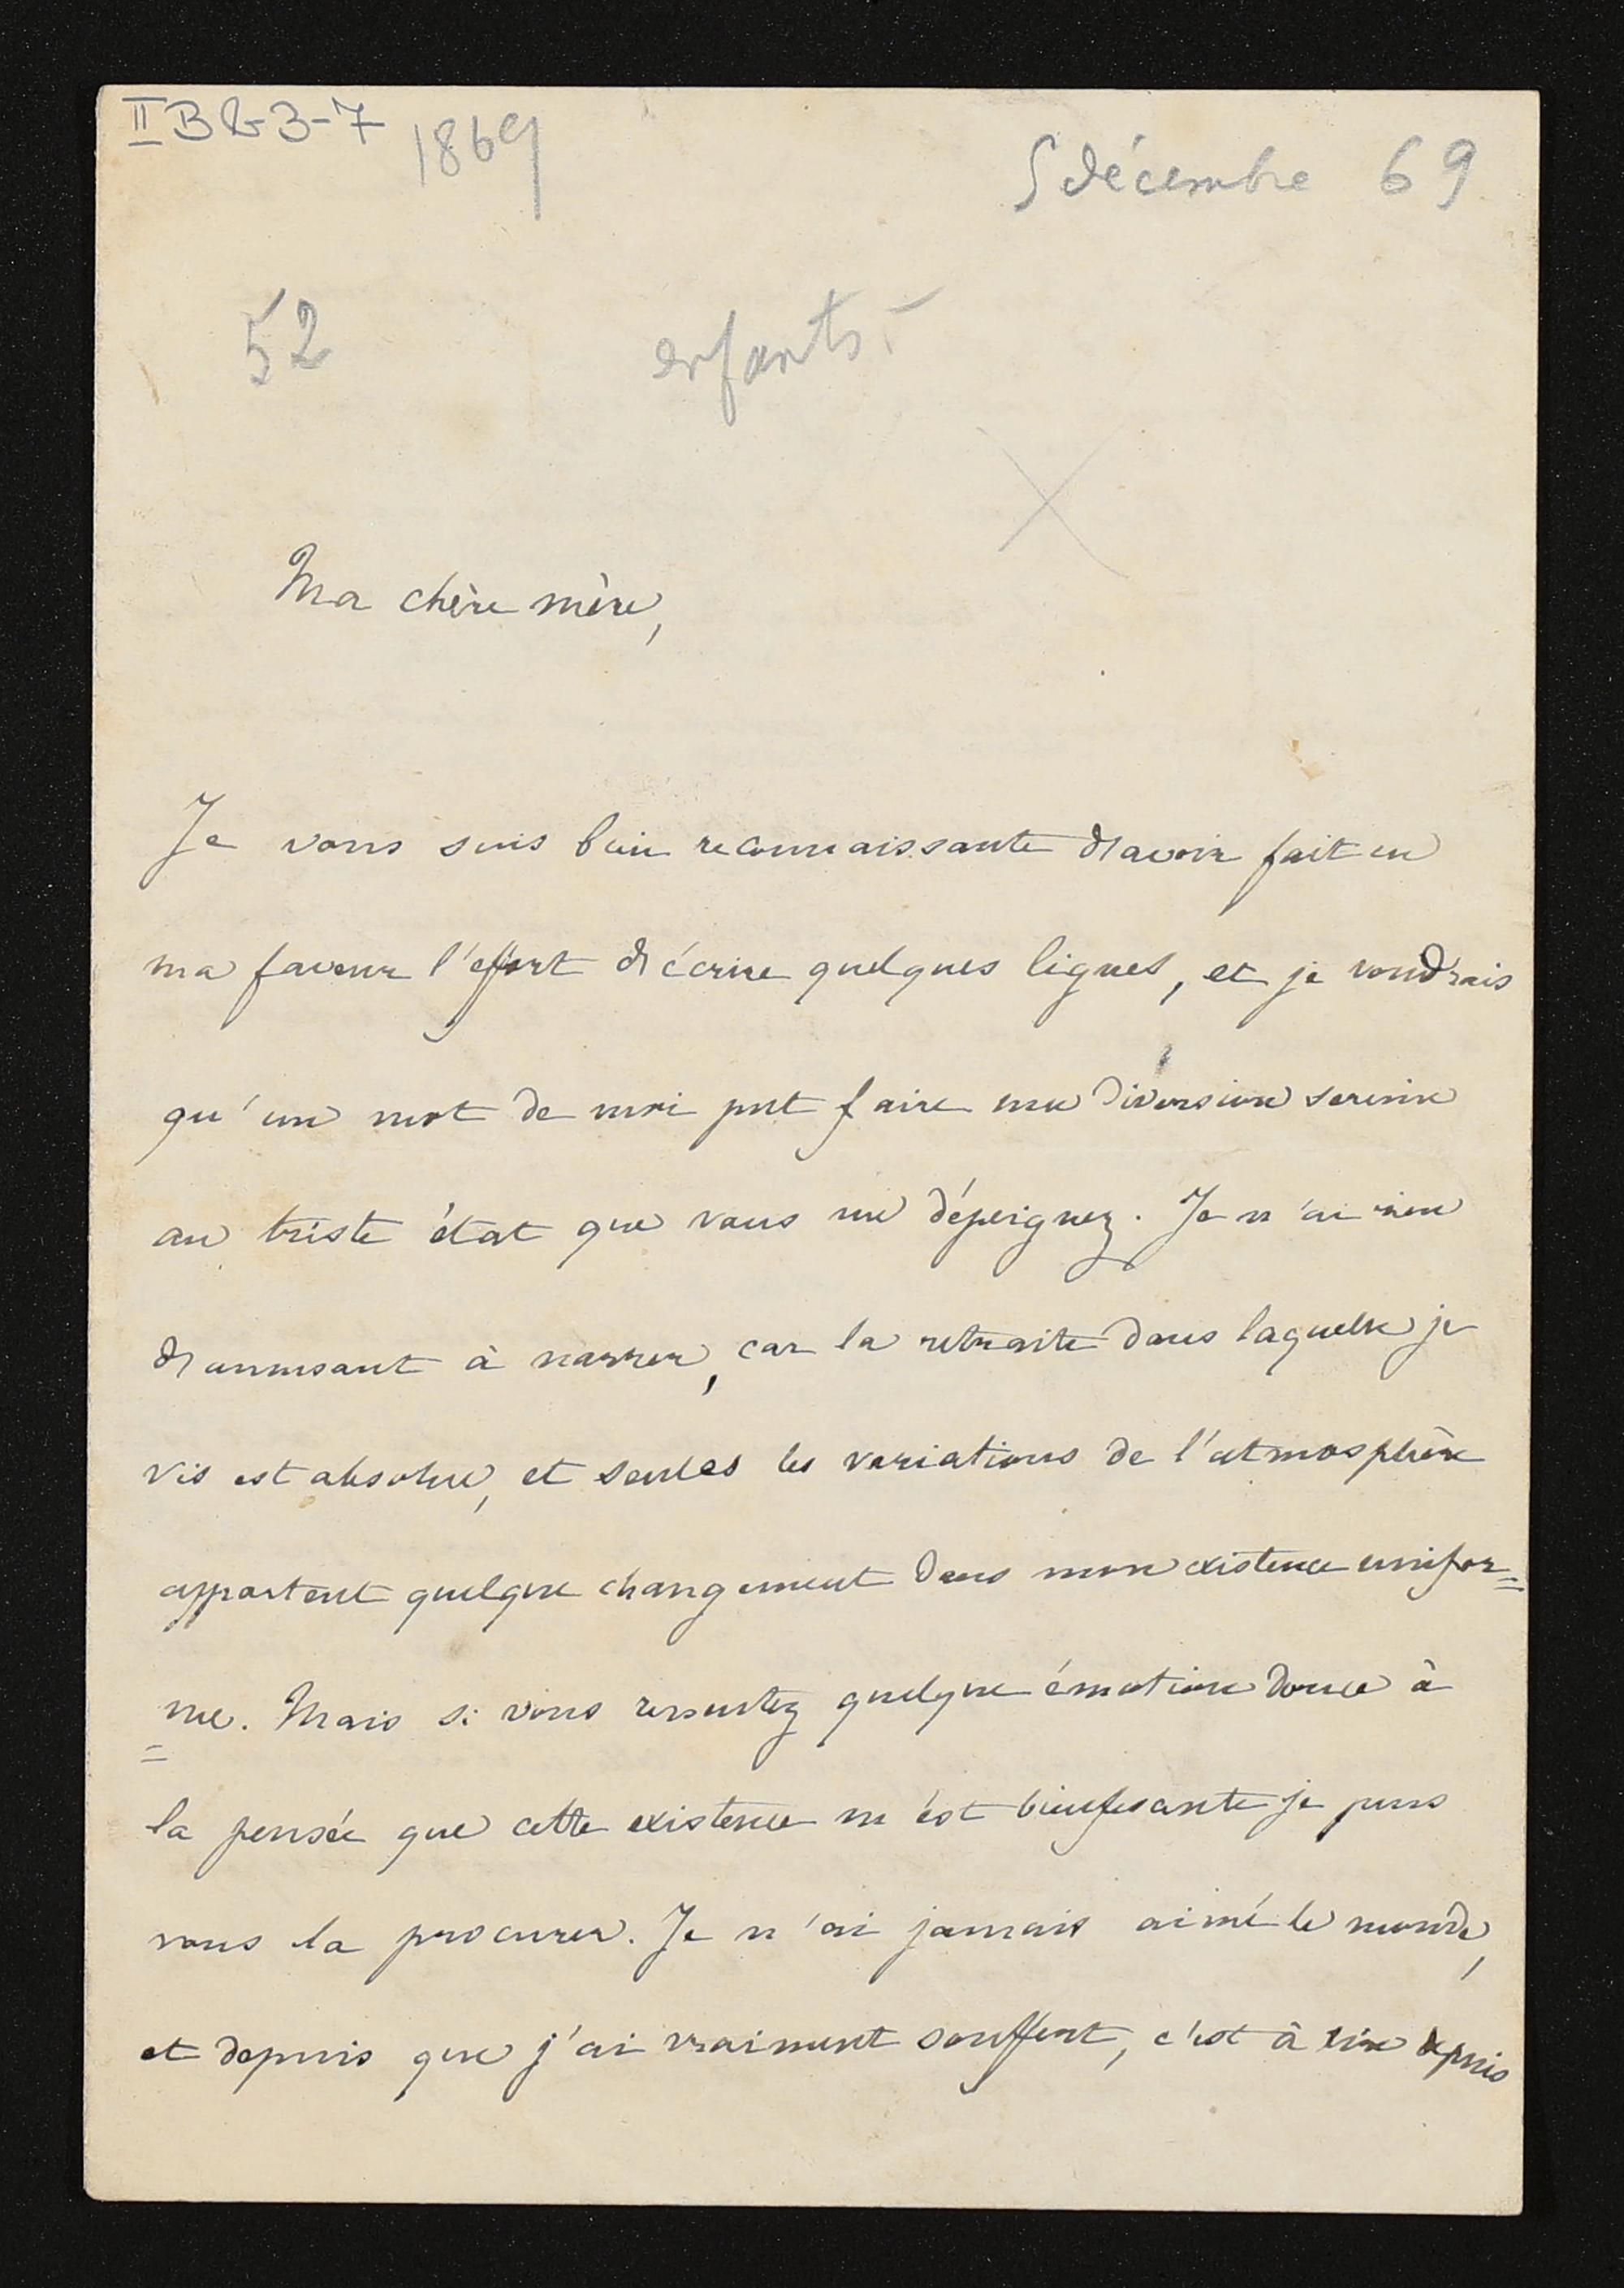 II B 2-3-7
1869
5 décembre 69
52
enfants -
Ma chère mère,
Je vous suis bien reconnaissante d'avoir fait en
ma faveur l'effort d'écrire quelques lignes, et je voudrais
qu'un mot de moi put faire une diversion sereine
au triste état que vous me dépeignez. Je n'ai rien
d'amusant à narrer, car la retraite dans laquelle je
vis est absolue, et seules les variations de l'atmosphère
apportent quelque changement dans mon existence unifor=
=me. Mais si vous ressentez quelque émotion douce à
la pensée que cette existence m'est bienfesante je puis
vous la procurer. Je n'ai jamais aimé le monde,
et depuis que j'ai vraiment souffert, c'est à dire depuis